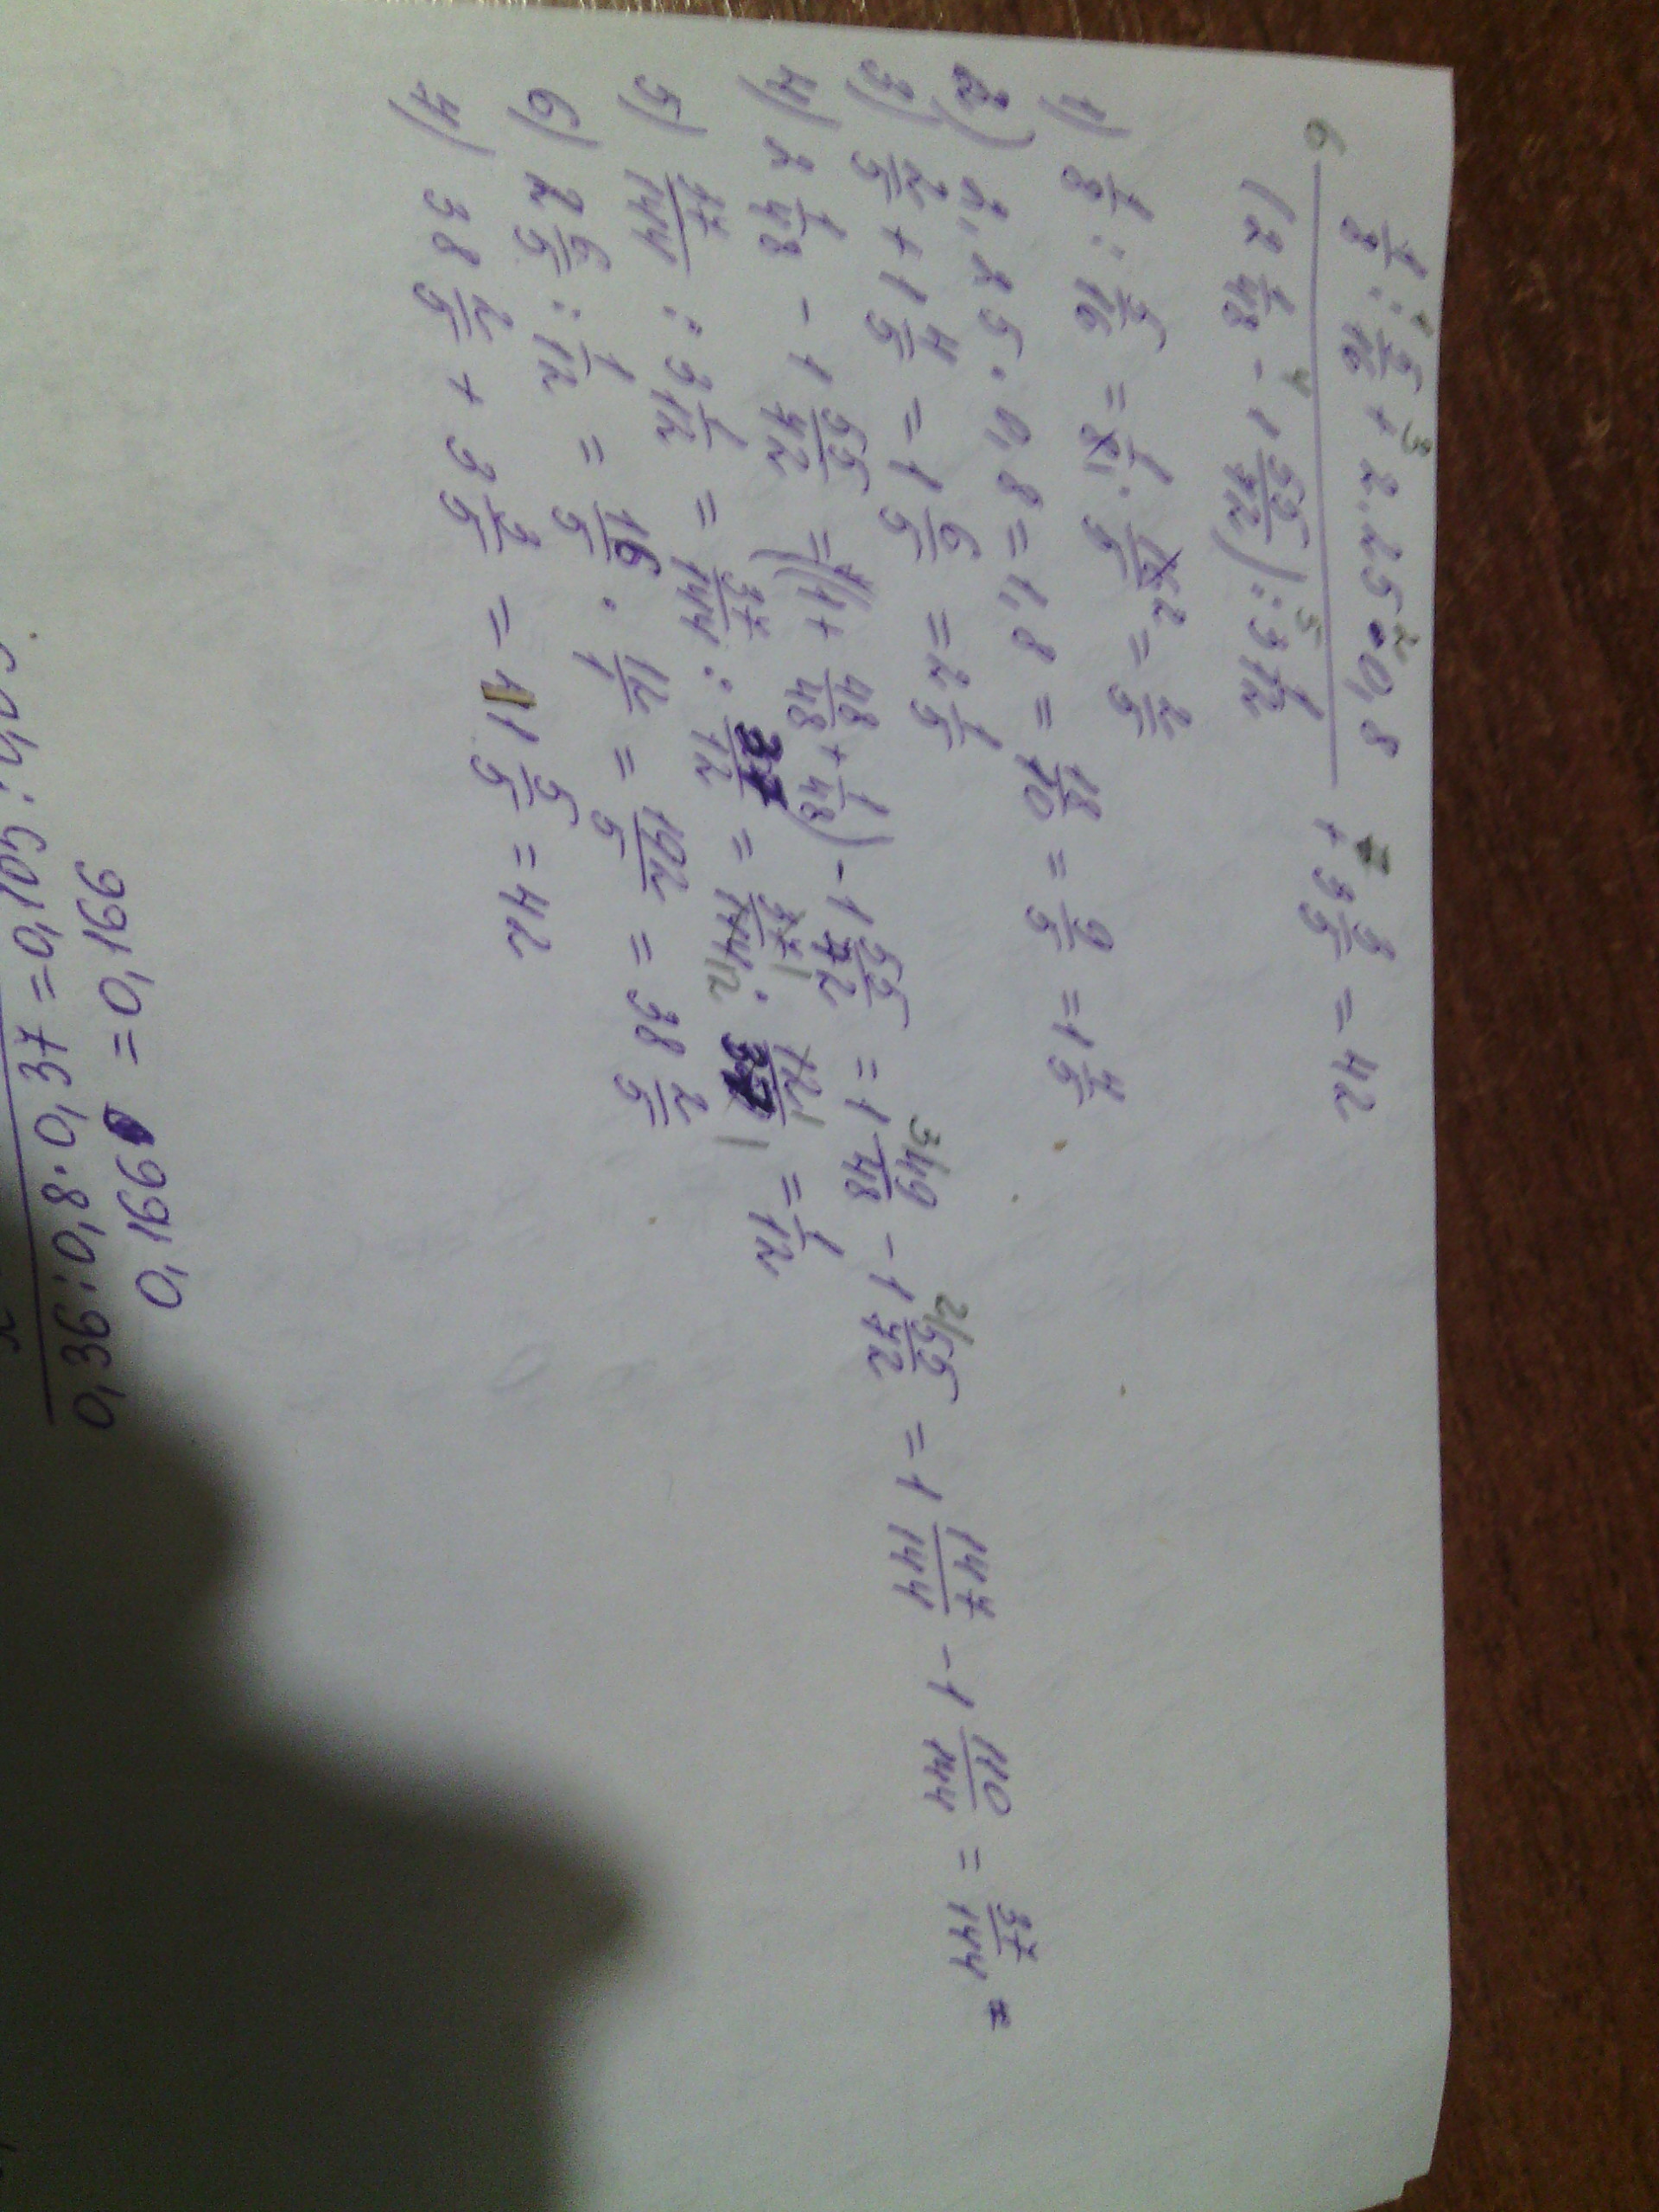 1/8 : 5/16 + 2.25 · 0,8
(2 1/48 - 1 55/72) : 3 1/12
+ 3 3/5 = 42
1) 1/8 : 5/16 = 1/8 · 16/5 = 2/5
2) 2,25 · 0,8 = 1,8 = 18/10 = 9/5 = 1 4/5
3) 2/5 + 1 4/5 = 1 6/5 = 2 1/5
4) 2 1/48 - 1 55/72 = (1 + 48/48 + 1/48) - 1 55/72 = 1 49/48 - 1 55/72 = 1 147/144 - 1 110/144 = 37/144 =
5) 37/144 : 3 1/12 = 37/144 : 37/12 = 37/144 · 12/37 = 1/12
6) 2 6/5 : 1/12 = 16/5 · 12/1 = 192/5 = 38 2/5
7) 38 2/5 + 3 3/5 = 41 5/5 = 42
0,36 : 0,8 · 0,37 = 0,105 :
0,166 = 0,166